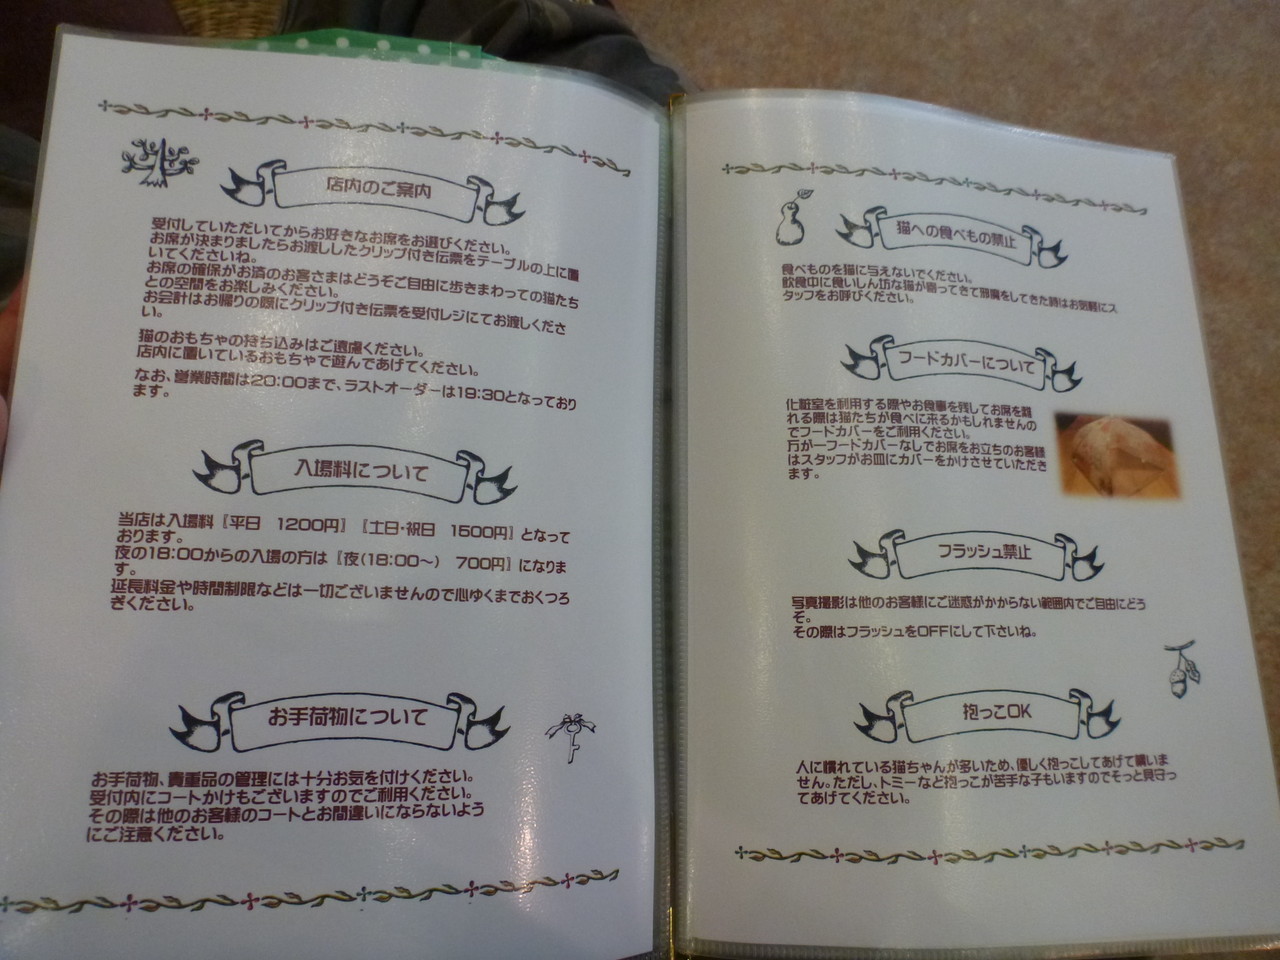 店内のご案内
受付していただいてからお好きなお席をお選びください。
お席が決まりましたらお渡ししたクリップ付き伝票をテーブルの上に置
いてくださいね。
お席の確保がお済のお客さまはどうぞご自由に歩きまわっての猫たち
との空間をお楽しみください。
お会計はお帰りの際にクリップ付き伝票を受付レジにてお渡しくださ
い。
猫のおもちゃの持ち込みはご遠慮ください。
店内に置いているおもちゃで遊んであげてください。
なお、営業時間は20:00まで、ラストオーダーは19:30となっており
ます。
入場料について
当店は入場料『平日 1200円』『土日・祝日 1500円』となって
おります。
夜の18:00からの入場の方は『夜(18:00〜) 700円』になりま
す。
延長料金や時間制限などは一切ございませんので心ゆくまでおくつろ
ぎください。
お手荷物について
お手荷物、貴重品の管理には十分お気を付けください。
受付内にコートかけもございますのでご利用ください。
その際は他のお客様のコートとお間違いにならないよう
にご注意ください。
猫への食べもの禁止
食べものを猫に与えないでください。
飲食中に食いしん坊な猫が寄ってきて邪魔をしてきた時はお気軽にス
タッフをお呼びください。
フードカバーについて
化粧室を利用する際やお食事を残してお席を離
れる際は猫たちが食べに来るかもしれませんの
でフードカバーをご利用ください。
万が一フードカバーなしでお席をお立ちのお客様
はスタッフがお皿にカバーをかけさせていただき
ます。
フラッシュ禁止
写真撮影は他のお客様にご迷惑がかからない範囲内でご自由にどう
ぞ。
その際はフラッシュをOFFにして下さいね。
抱っこOK
人に慣れている猫ちゃんが多いため、優しく抱っこしてあげて構いま
せん。ただし、トミーなど抱っこが苦手な子もいますのでそっと見守っ
てあげてください。